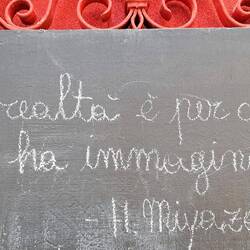 realtà è per c
ha immagin
- H. Miyaz